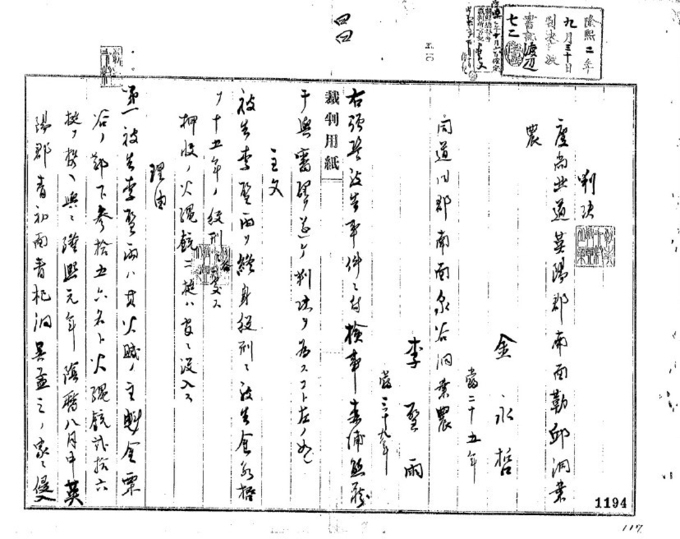 隆熙二年
九月三十日
判決
慶尚北道英陽郡南面勒邱洞業
農
金永哲
當二十五年
同道同郡南面泉谷洞業農
李聖雨
當三十九年
右强盜被告事件ニ付檢事
裁判用紙
干與審理ヲ遂ケ判決ヲ為スコト左ノ如シ
主文
被告李聖雨ヲ終身役刑ニ被告金永哲
ヲ十五年ノ役刑ニ處ス
押收ノ火繩銃二挺ハ官ニ沒入ス
理由
第一被告李聖雨ハ其火賊ノ主魁金
谷ノ部下參拾五六名ト火繩銃貳拾六
挺ヲ携ヘ與ニ隆熙元年陰曆八月中英
陽郡青初面青杞洞吳孟之ノ家ニ侵入
1194
117